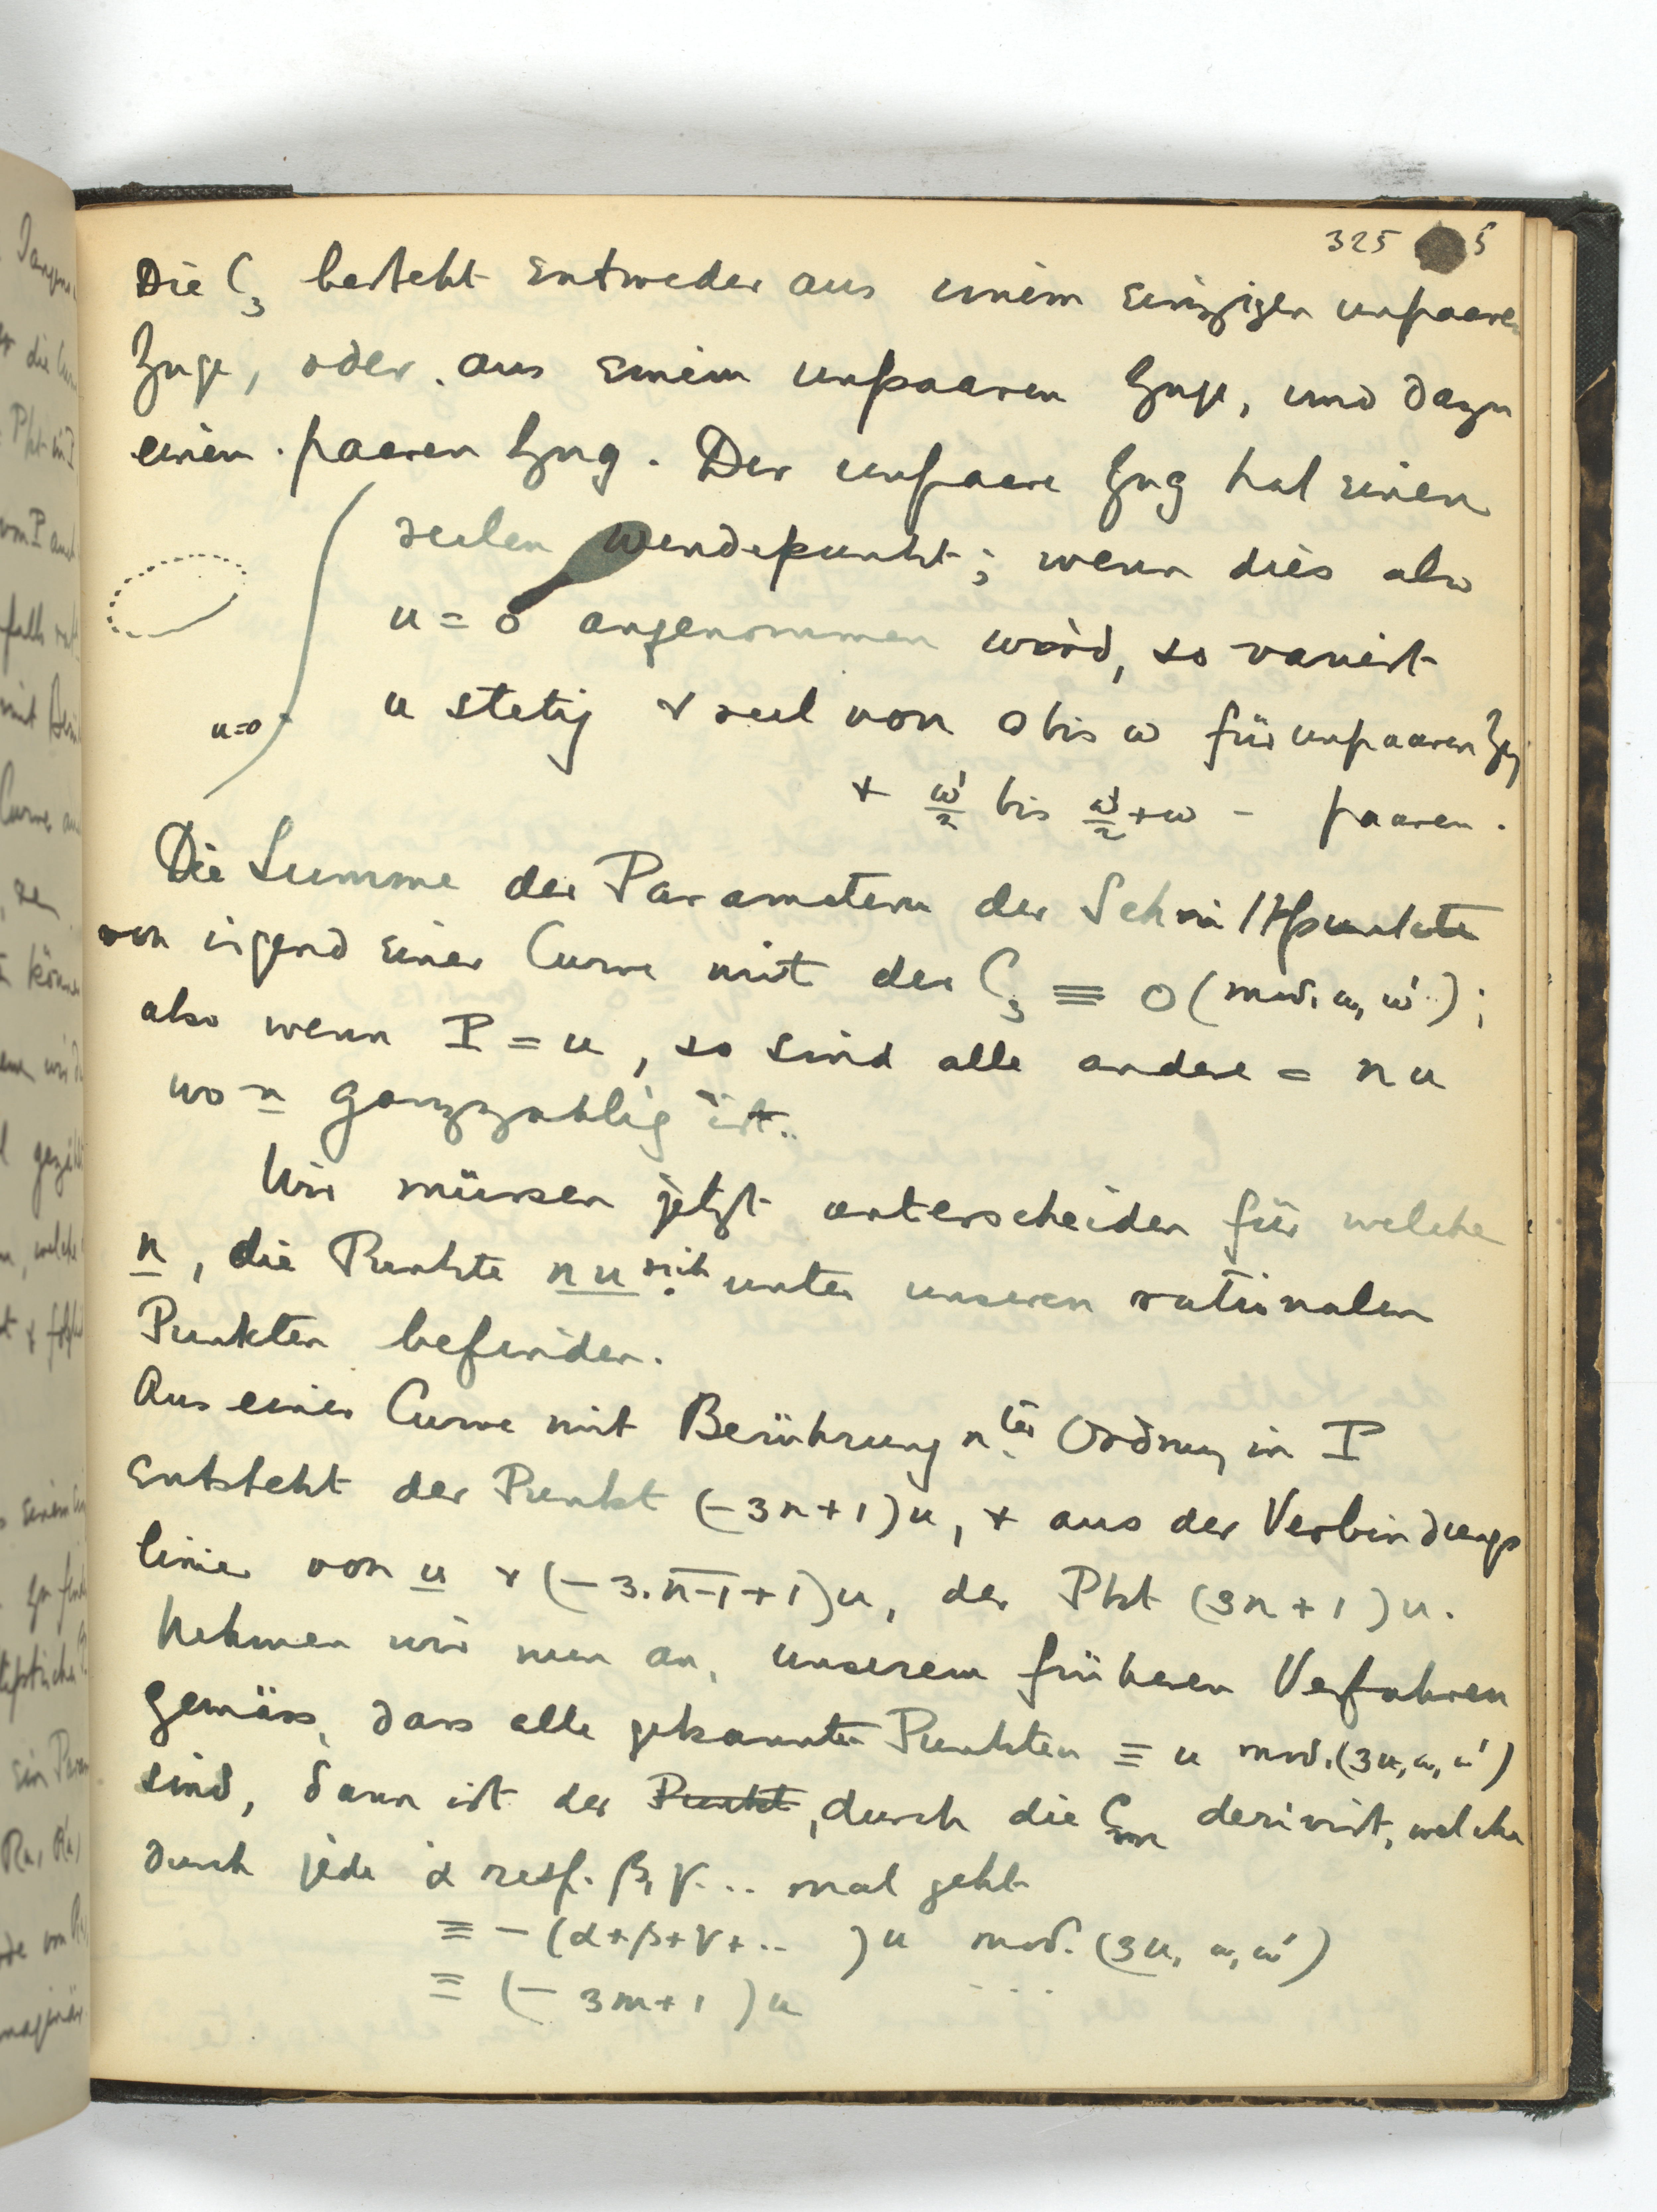 325 5
Die C₃ besteht entweder aus einem einzigen unpaaren
Zuge, oder aus einem unpaaren Zuge, und dazu
einem paaren Zug. Der unpaare Zug hat einen
reelen Wendepunkt; wenn dies als
u = 0 angenommen wird, so variirt
u stetig + reel von 0 bis ω für unpaaren Zug
u=0
+ ω'/2 bis ω'/2 + ω - paaren.
Die Summe der Parametern der Schnittpunkte
von irgend einer Curve mit der C₃ ≡ 0 (mod. ω, ω');
also wenn I = u, so sind alle andere = nu
wo n ganzzahlig ist.
Wir müssen jetzt unterscheiden für welche
n, die Punkte nu sich unter unseren rationalen
Punkten befinden.
Aus einer Curve mit Berührung nter Ordnung in I
entsteht der Punkt (-3n+1)u, + aus der Verbindungs
linie von u + (-3.n-1+1)u, der Pkt (3n+1)u.
Nehmen wir nun an, unserem früheren Verfahren
gemäss, dass alle gekannte Punkten ≡ u mod. (3u, ω, ω')
sind, dann ist der Punkt, durch die Cm derivirt, welche
durch jede α resp. β, γ... mal geht
≡ -(α+β+γ+.. )u mod. (3u, ω, ω')
≡ (-3m+1)u . . .